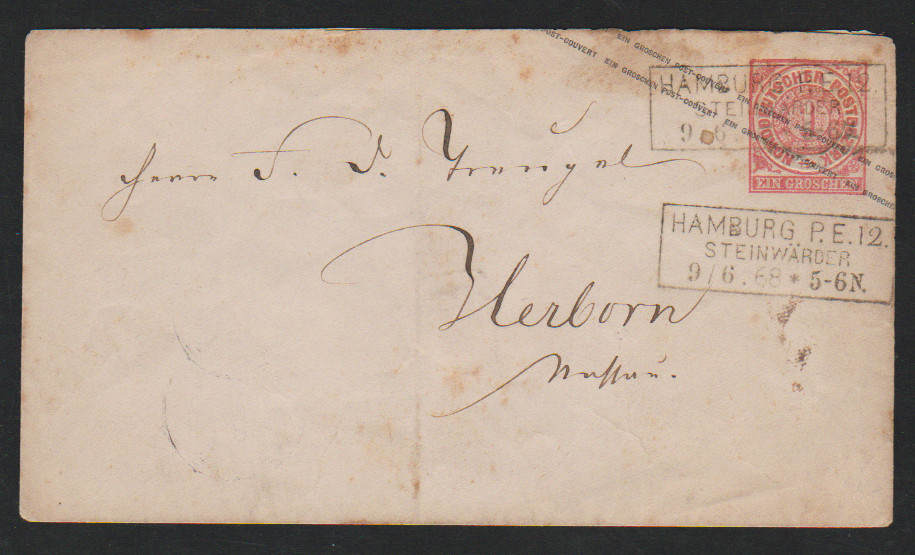 EIN GROSCHEN POST-COUVERT EIN GROSCHEN POST-COUVERT
POST-COUVERT EIN GROSCHEN POST-COUVERT EIN GROSCHEN POST-COUVERT EIN GROSCHEN
HAMBURG P.E.12.
STEINWÄRDER
9/6
NORDDEUTSCHER POSTBEZIRK
1
EIN GROSCHEN
HAMBURG P.E.12.
STEINWÄRDER
9/6.68 * 5-6N.
Herrn F. D.
Herborn
Nassau.